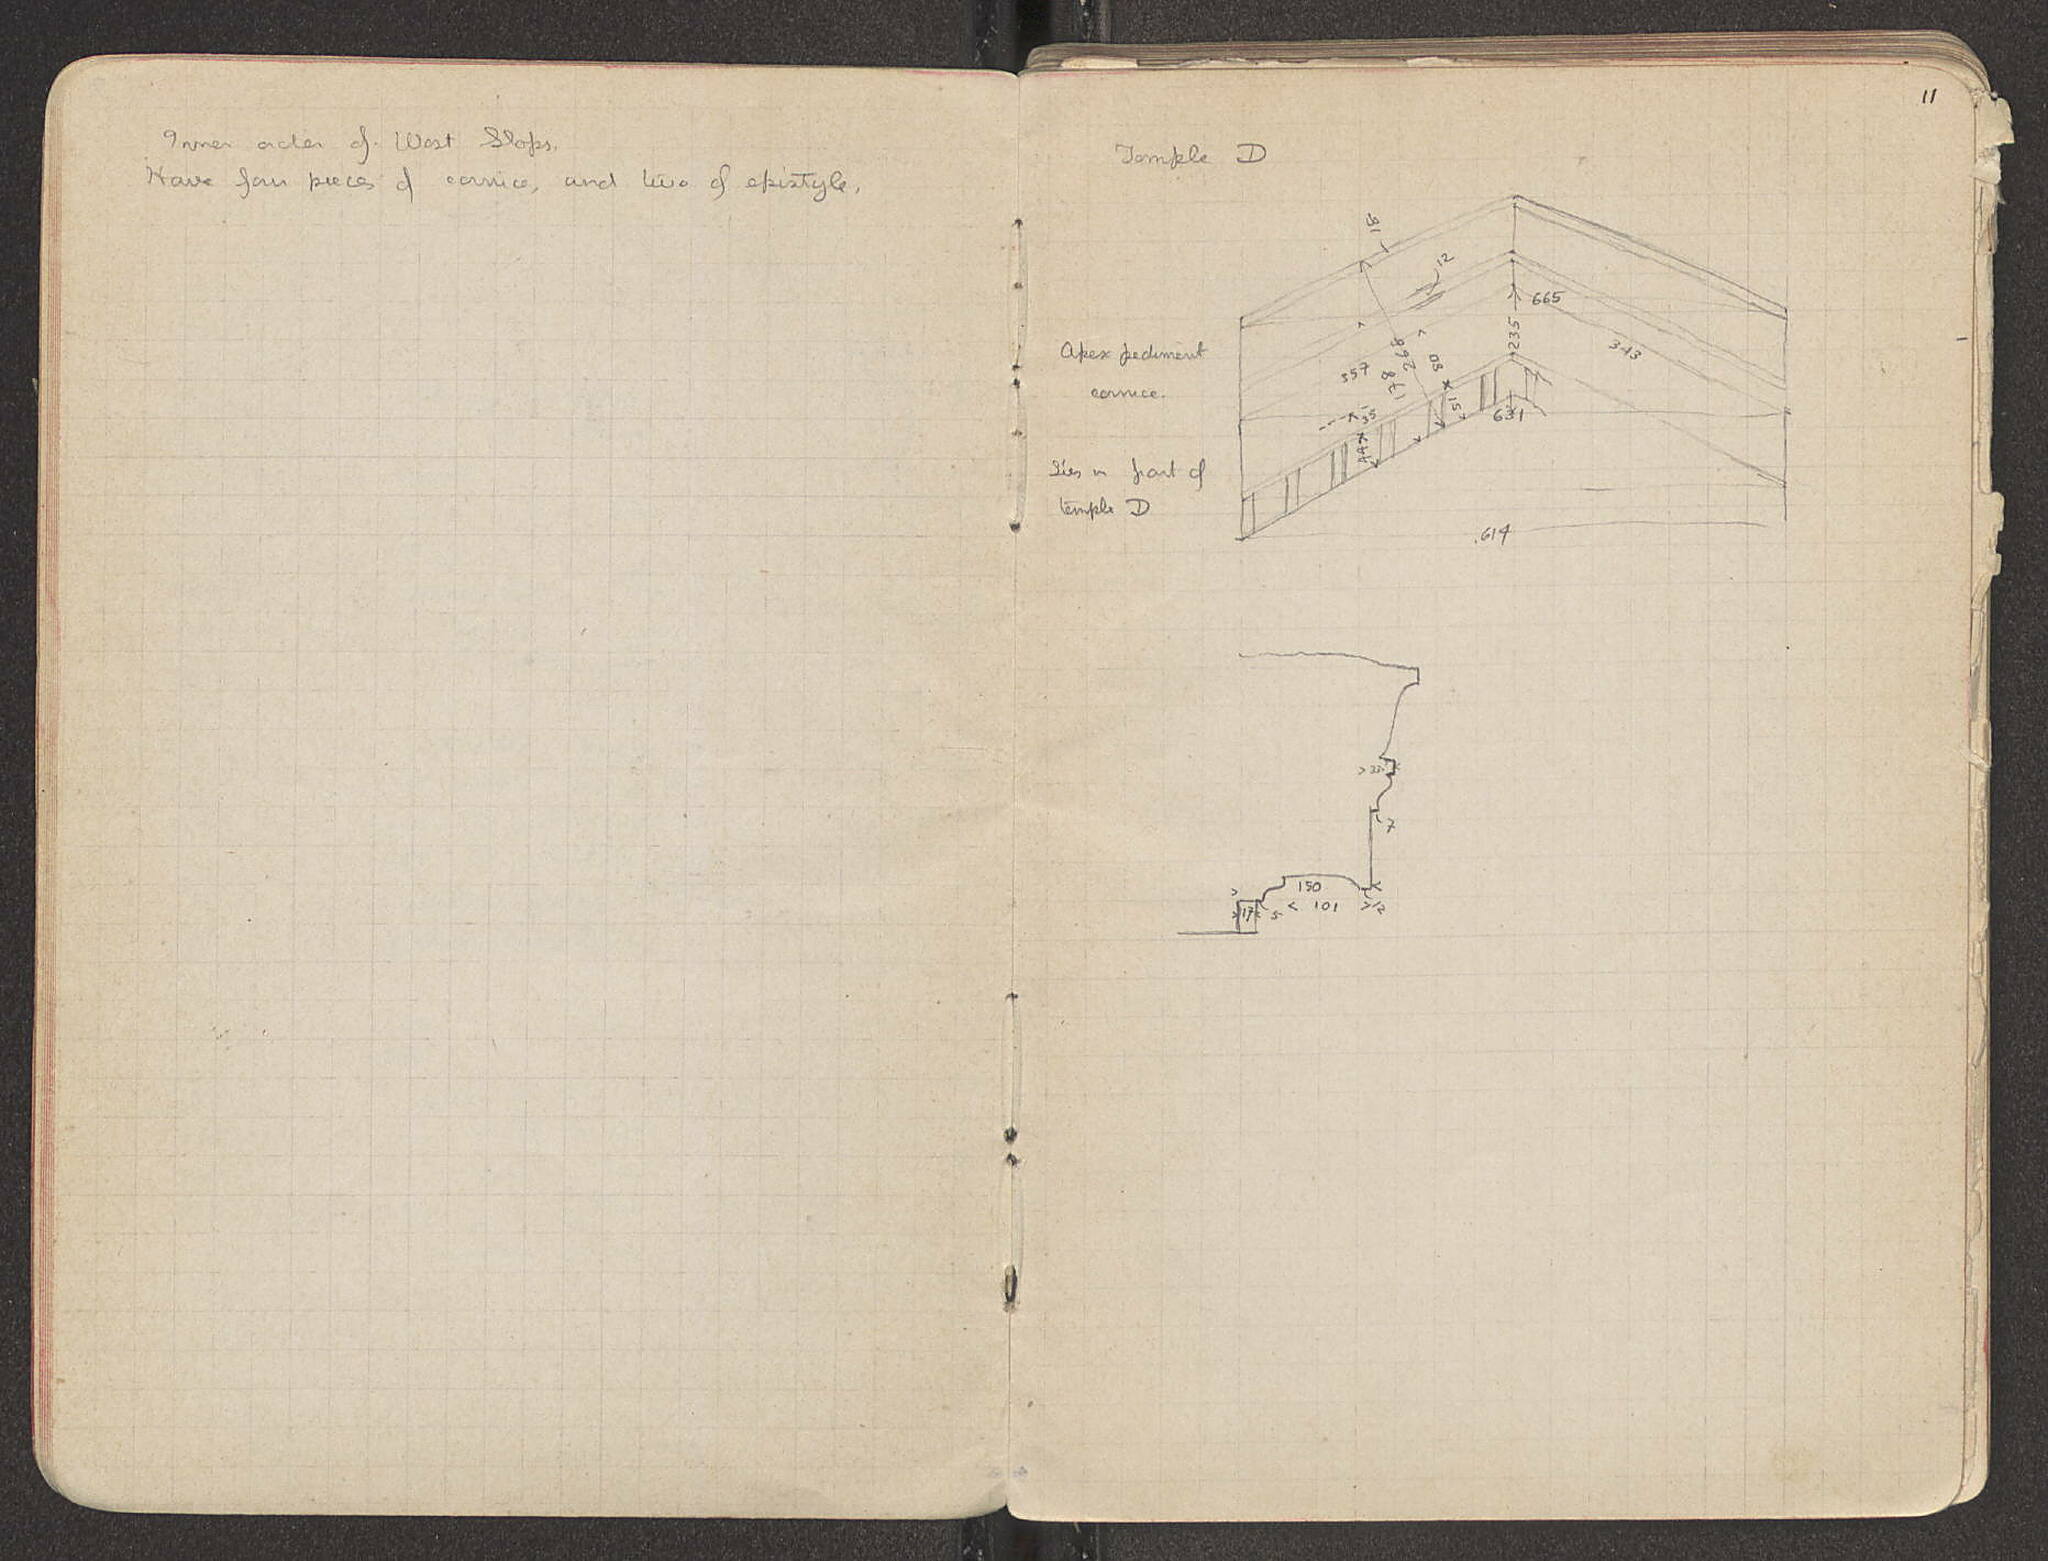 Inner order of West Stops.
Have four pieces of cornice, and two of epistyle.
11
Temple D
Apex pediment
cornice.
Lies in front of
temple D
12
665
235
343
357
268
178
80
15
35
44
631
.614
33
7
150
17
5
101
12